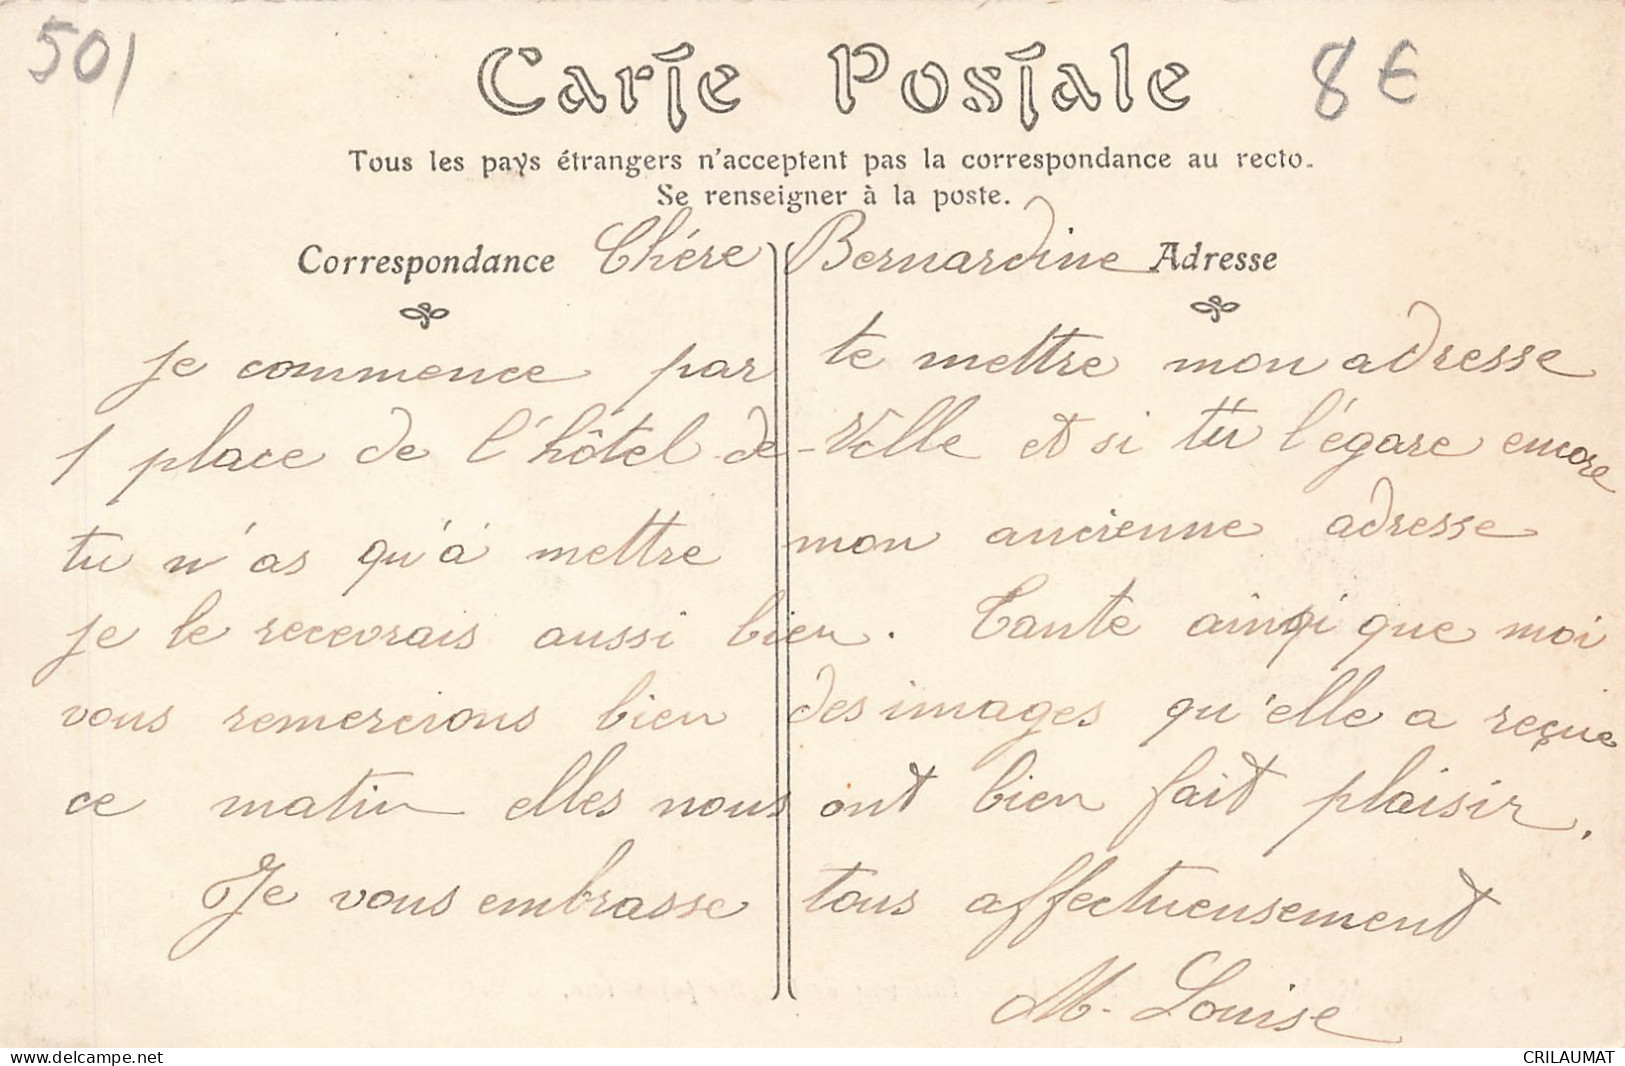 501
8€
Carte Postale
Tous les pays étrangers n'acceptent pas la correspondance au recto.
Se renseigner à la poste.
Correspondance Chére Bernardine Adresse
je commence par te mettre mon adresse
1 place de l'hôtel-de-Ville et si tu l'égare encore
tu n'as qu'à mettre mon ancienne adresse
je le recevrais aussi bien. Tante ainsi que moi
vous remercions bien des images qu'elle a reçue
ce matin elles nous ont bien fait plaisir.
Je vous embrasse tous affectueusement
M. Louise
CRILAUMAT